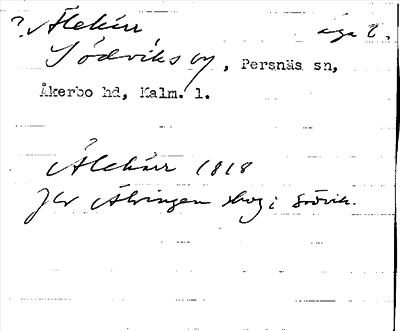 ? Ålekärr äga 2.
Södviks by, Persnäs sn,
Åkerbo hd, Kalm. l.
Ålekärr 1818
Jfr Alvingen skog i Södvik.